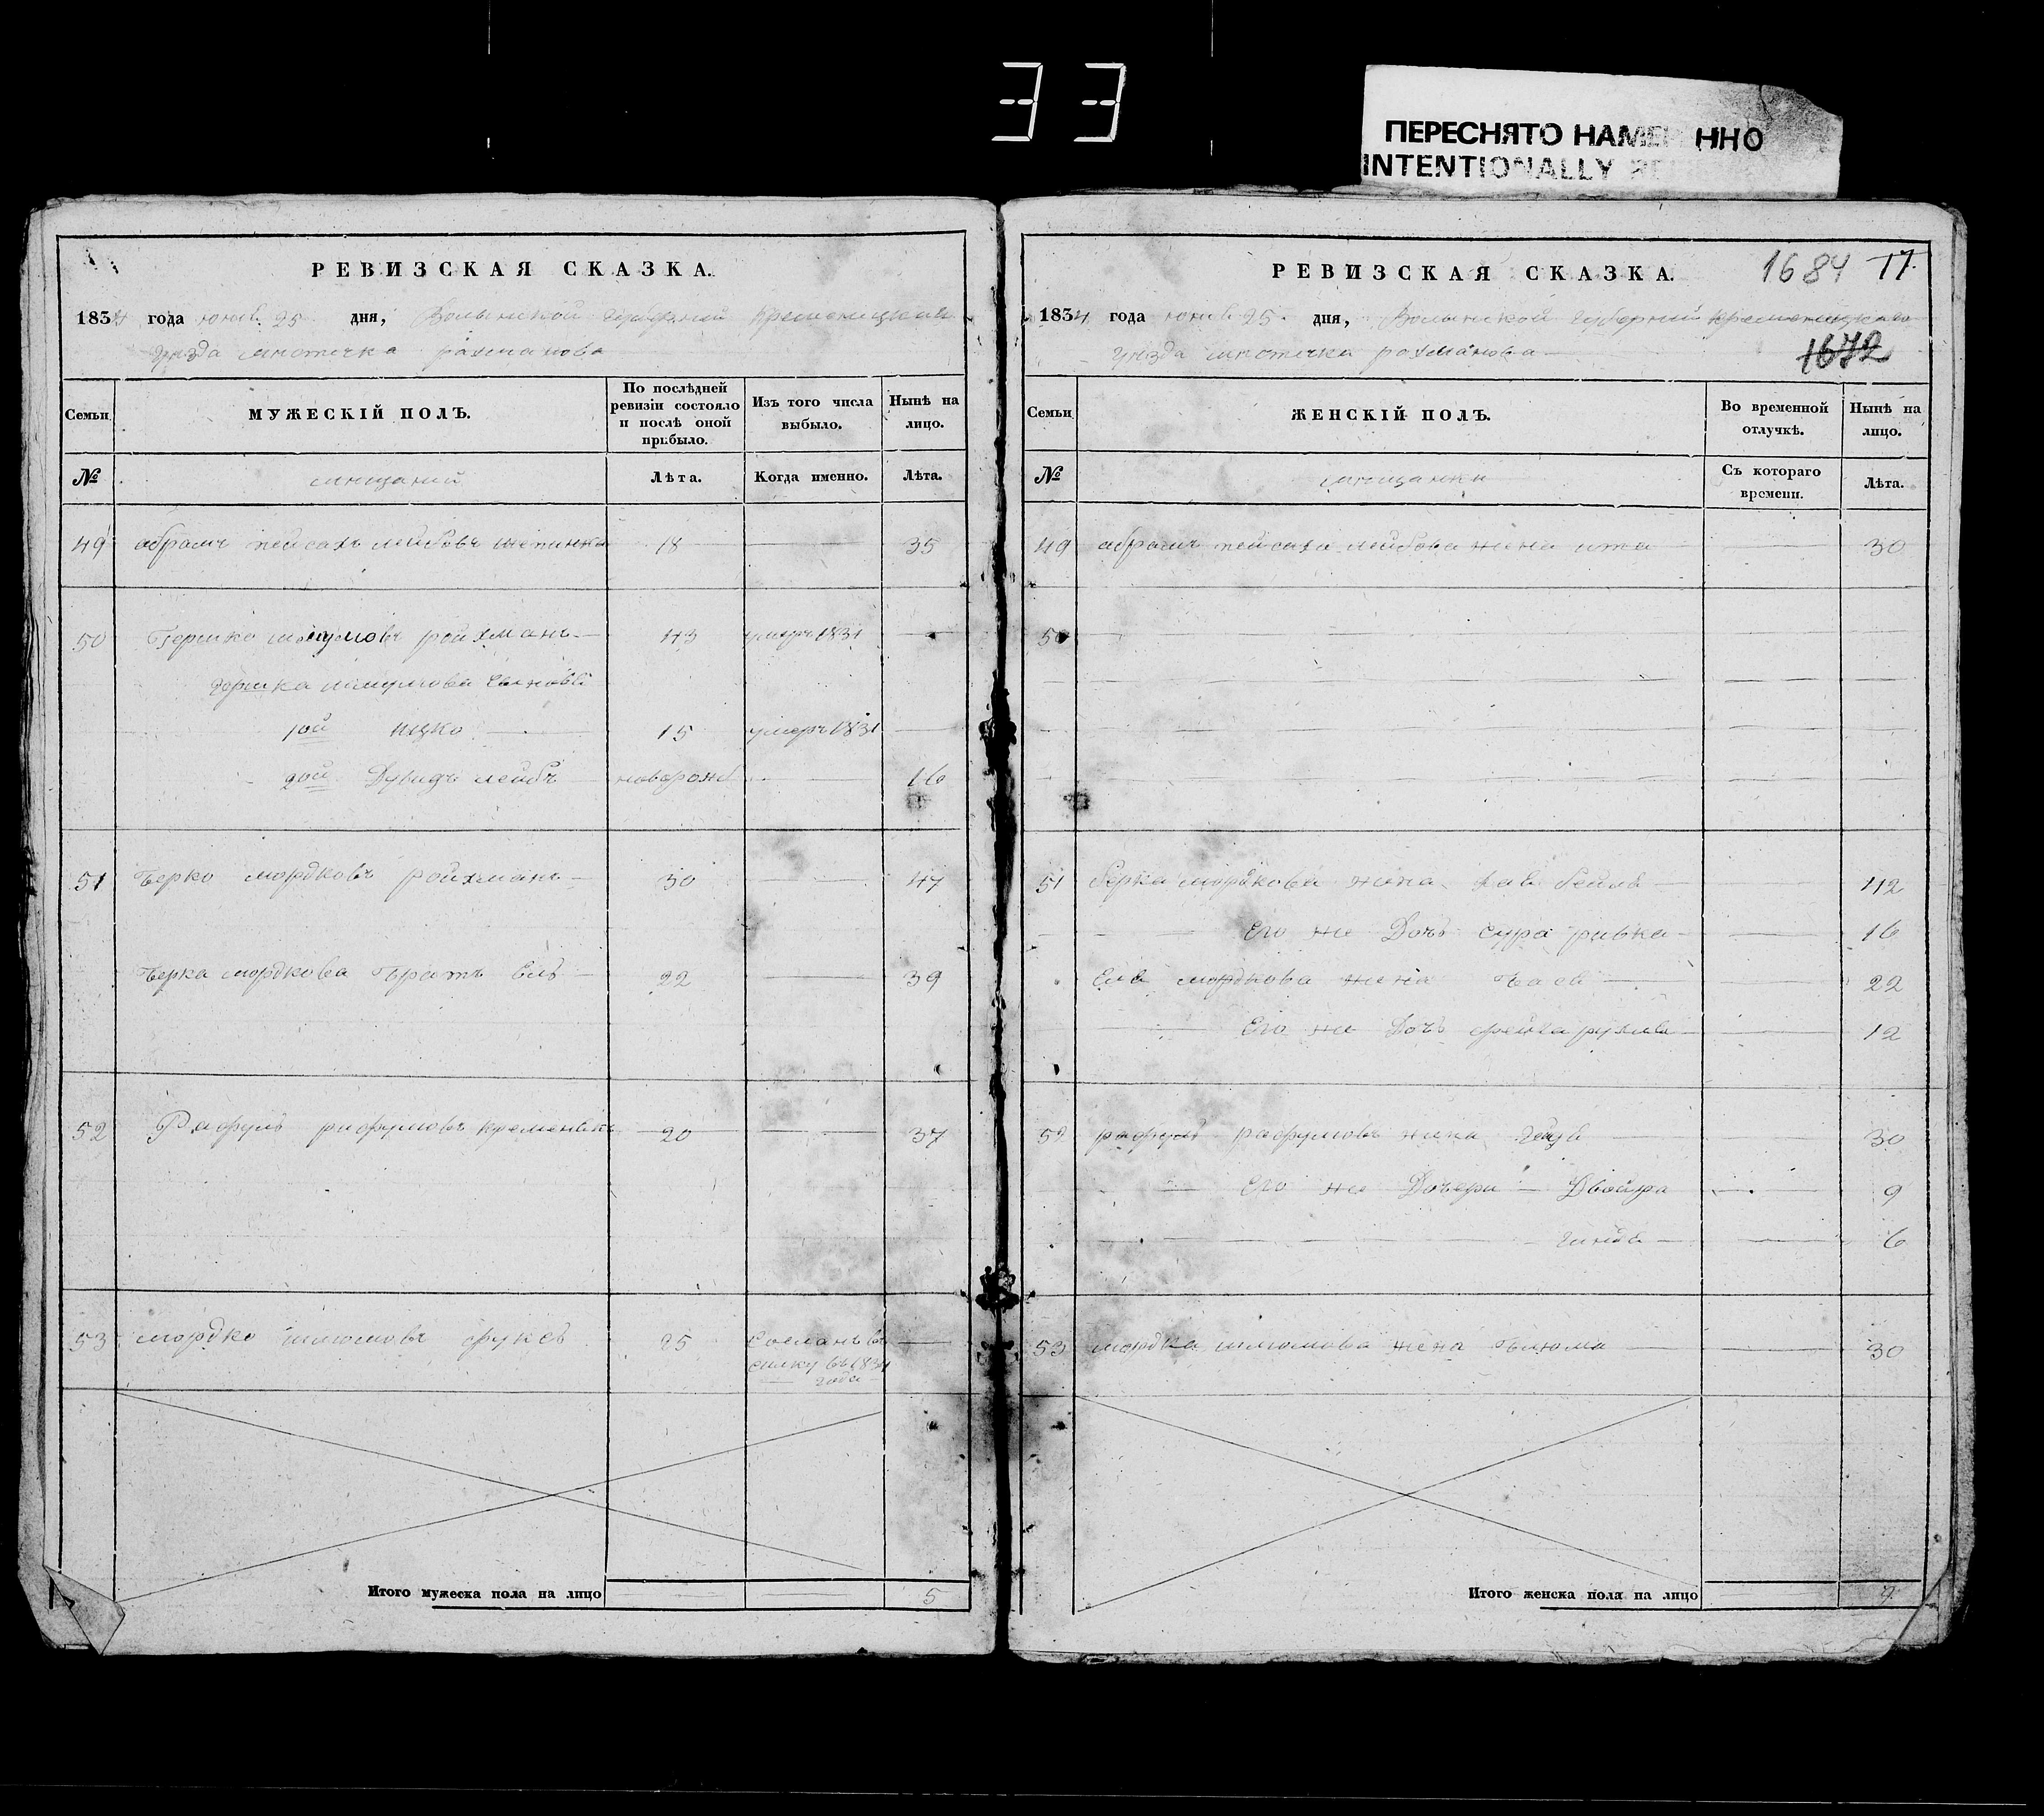 33
ПЕРЕСНЯТО НАМЕ ННО
INTENTIONALLY
РЕВИЗСКАЯ СКАЗКА.
1834 года июня 25 дня, Волынской губернии Кременецкаго
уезда местечка рахманова
Семьи
МУЖЕСКІЙ ПОЛЪ.
По послѣдней ревизіи состояло и послѣ оной прибыло.
Изъ того числа выбыло.
Нынѣ на лицо.
№
мещаний
Лѣта.
Когда именно.
Лѣта.
49 абрамъ пейсахъ лейбовъ 18 35
50 Гершко ройхманъ 43 умеръ 1831
Гершка сыновья
1ой ицко 15 умеръ 1831
2ой Дувидъ лейбъ новорож 16
51 Берко мордковъ ройхманъ 30 47
Берка мордкова братъ Елъ 22 39
52 Рафулъ рафуловъ 20 37
53 мордко шлиомовъ фуксъ 25 Сосланъ въ
силку въ 1831
года
Итого мужеска пола на лицо 5
РЕВИЗСКАЯ СКАЗКА.
1684 17.
1834 года июня 25 дня, Волынской губернии Кременецкаго
уезда местечка рахманова
1672
Семьи
ЖЕНСКІЙ ПОЛЪ.
Во временной отлучкѣ.
Нынѣ на лицо.
№
мещанки
Съ котораго времени.
Лѣта.
49 абрамъ пейсаха лейбова жена ита 30
50
51 берка мордкова жена хая бейла 42
Его же Дочь сура ривка 16
Еля мордкова жена бася 22
Его же Дочь фейга рухля 12
52 рафула рафуловъ жена 30
Его же Дочери Двойра 9
6
53 мордка шлиомова жена блюма 30
Итого женска пола на лицо 9